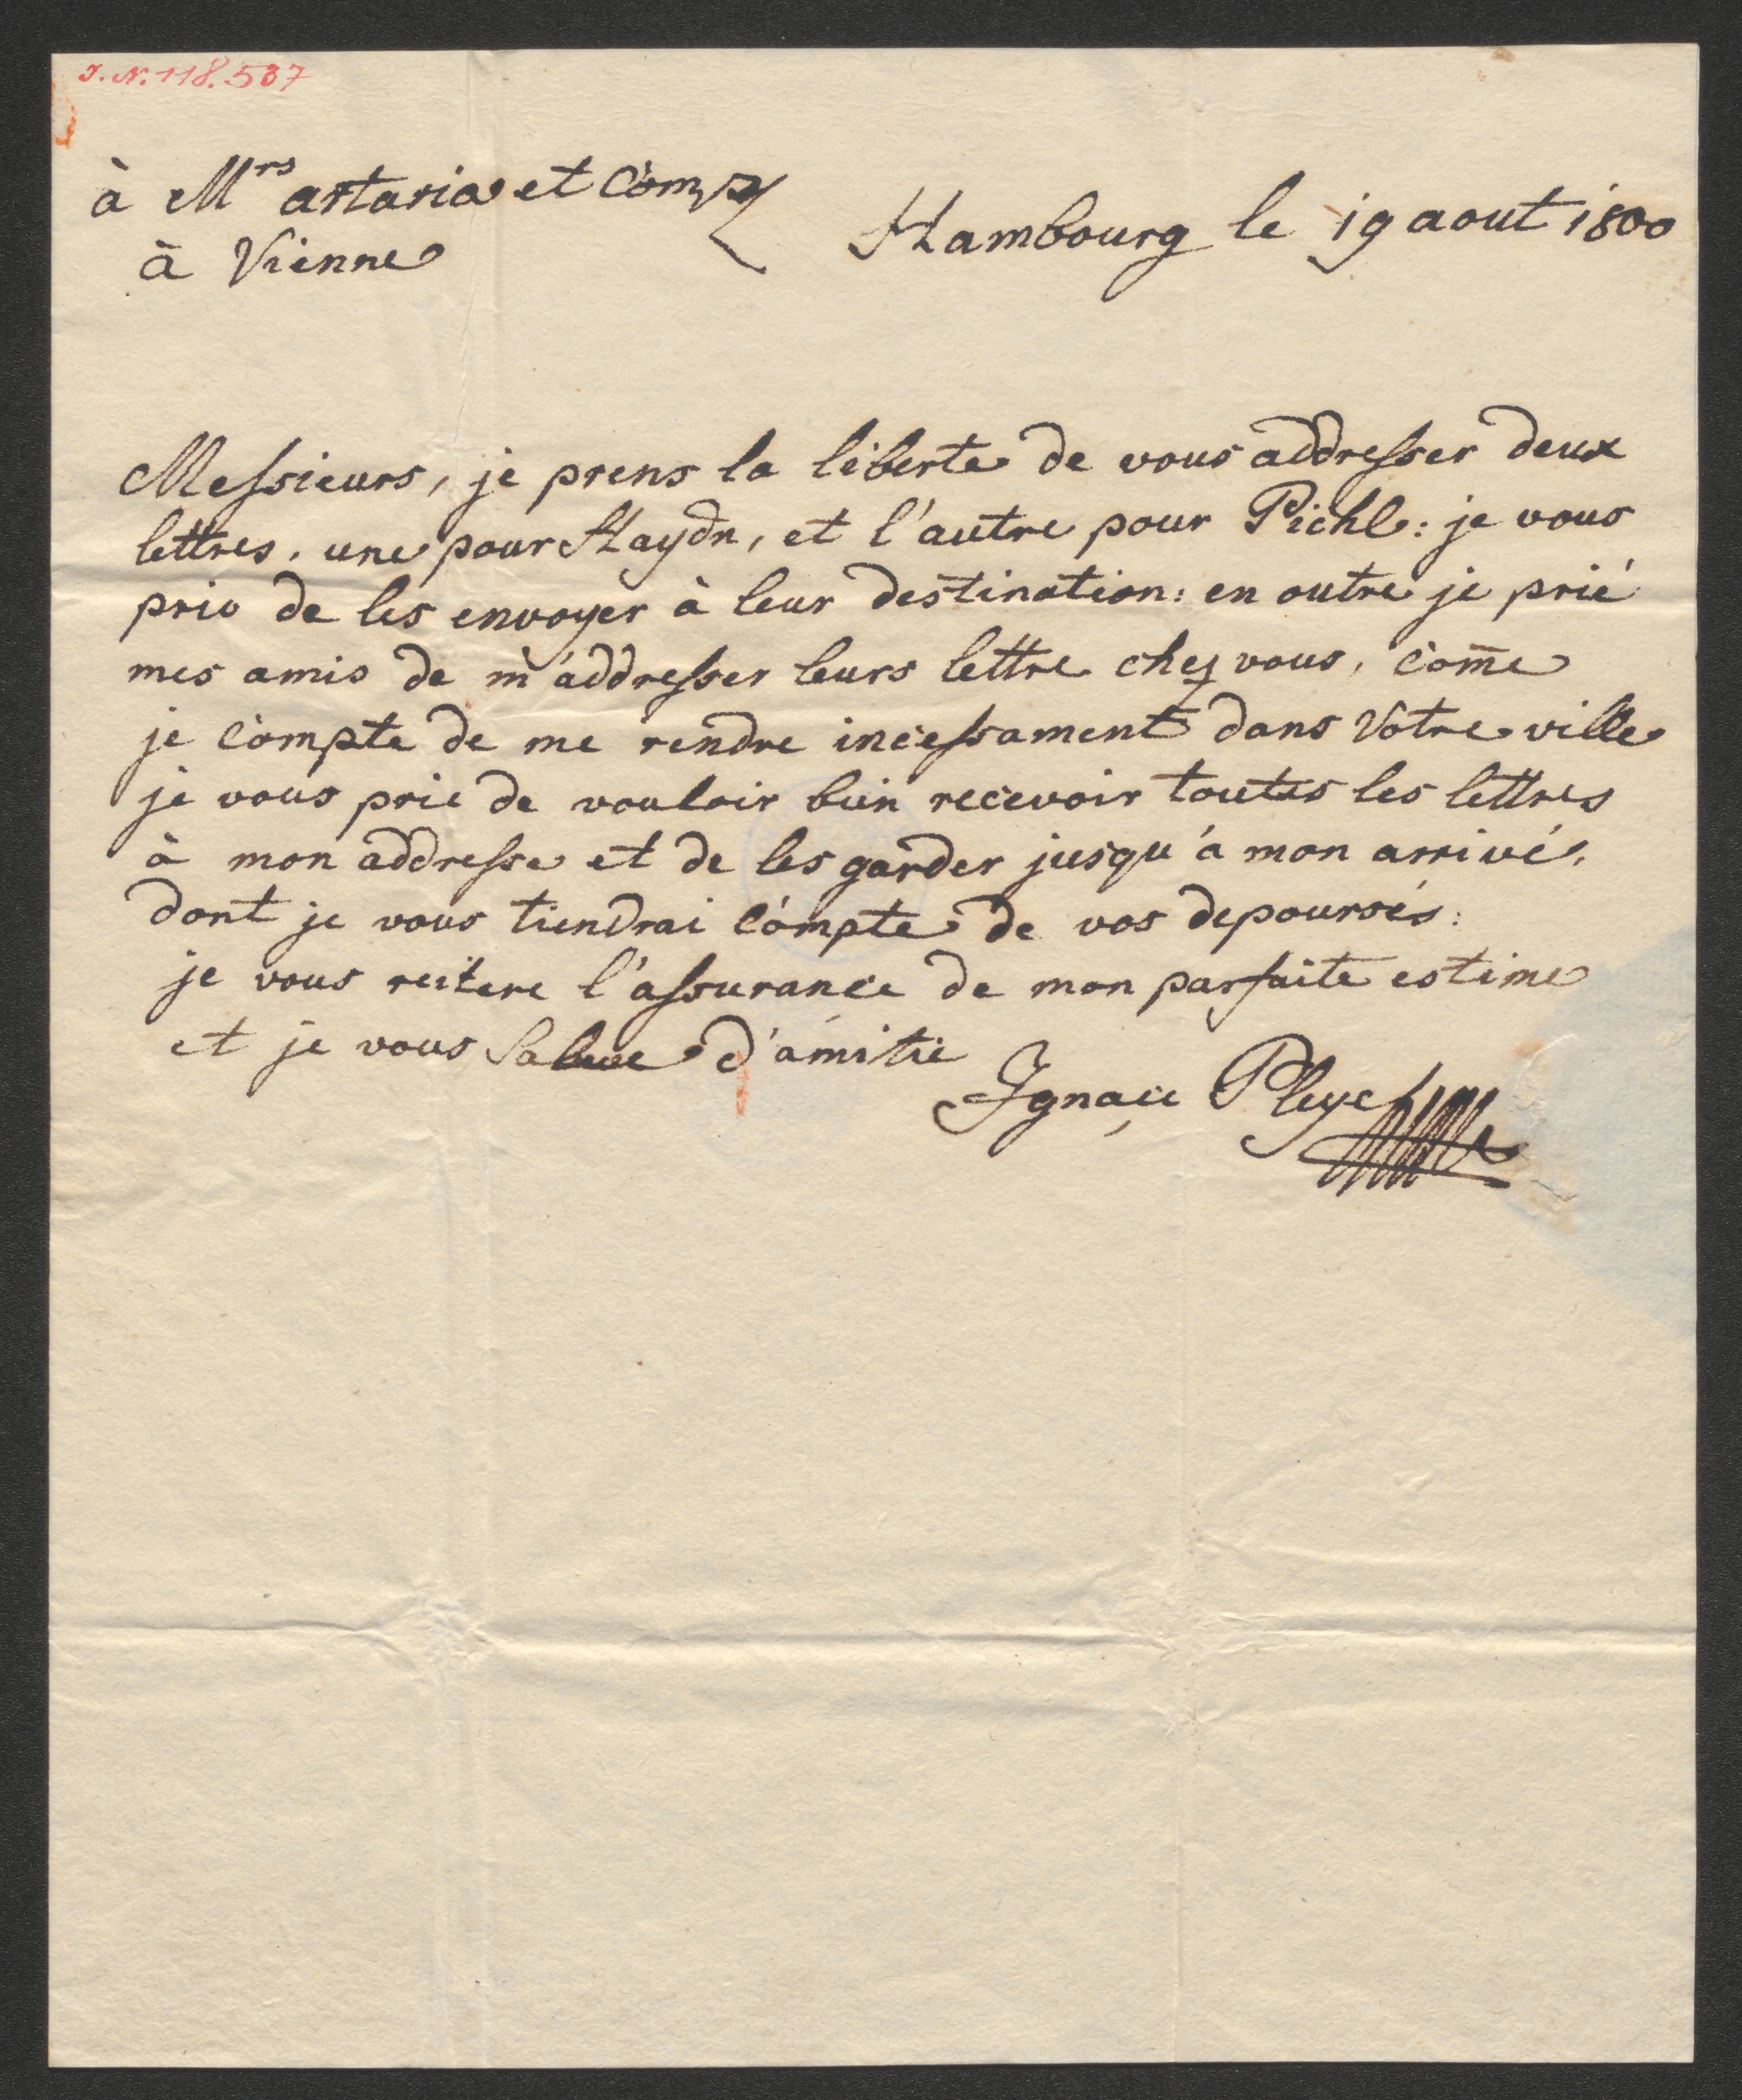 I. N. 118.537
à Mrs artaria et Comp
à Vienne
Hambourg le 19 aout 1800
Messieurs, je prens la liberte de vous addresser deux
lettres. une pour Haydn, et l'autre pour Pichl: je vous
prie de les envoyer à leur destination: en outre je prié
mes amis de m'addresser leurs lettre chez vous, com̄e
je compte de me rendre incessament dans Votre ville
je vous prie de vouloir bien recevoir toutes les lettres
à mon addresse et de les garder jusqu'à mon arrivé,
dont je vous tiendrai compte de vos depoursés:
je vous reitere l'assurance de mon parfaite estime
et je vous Salue d'amitié
Ignace Pleyel